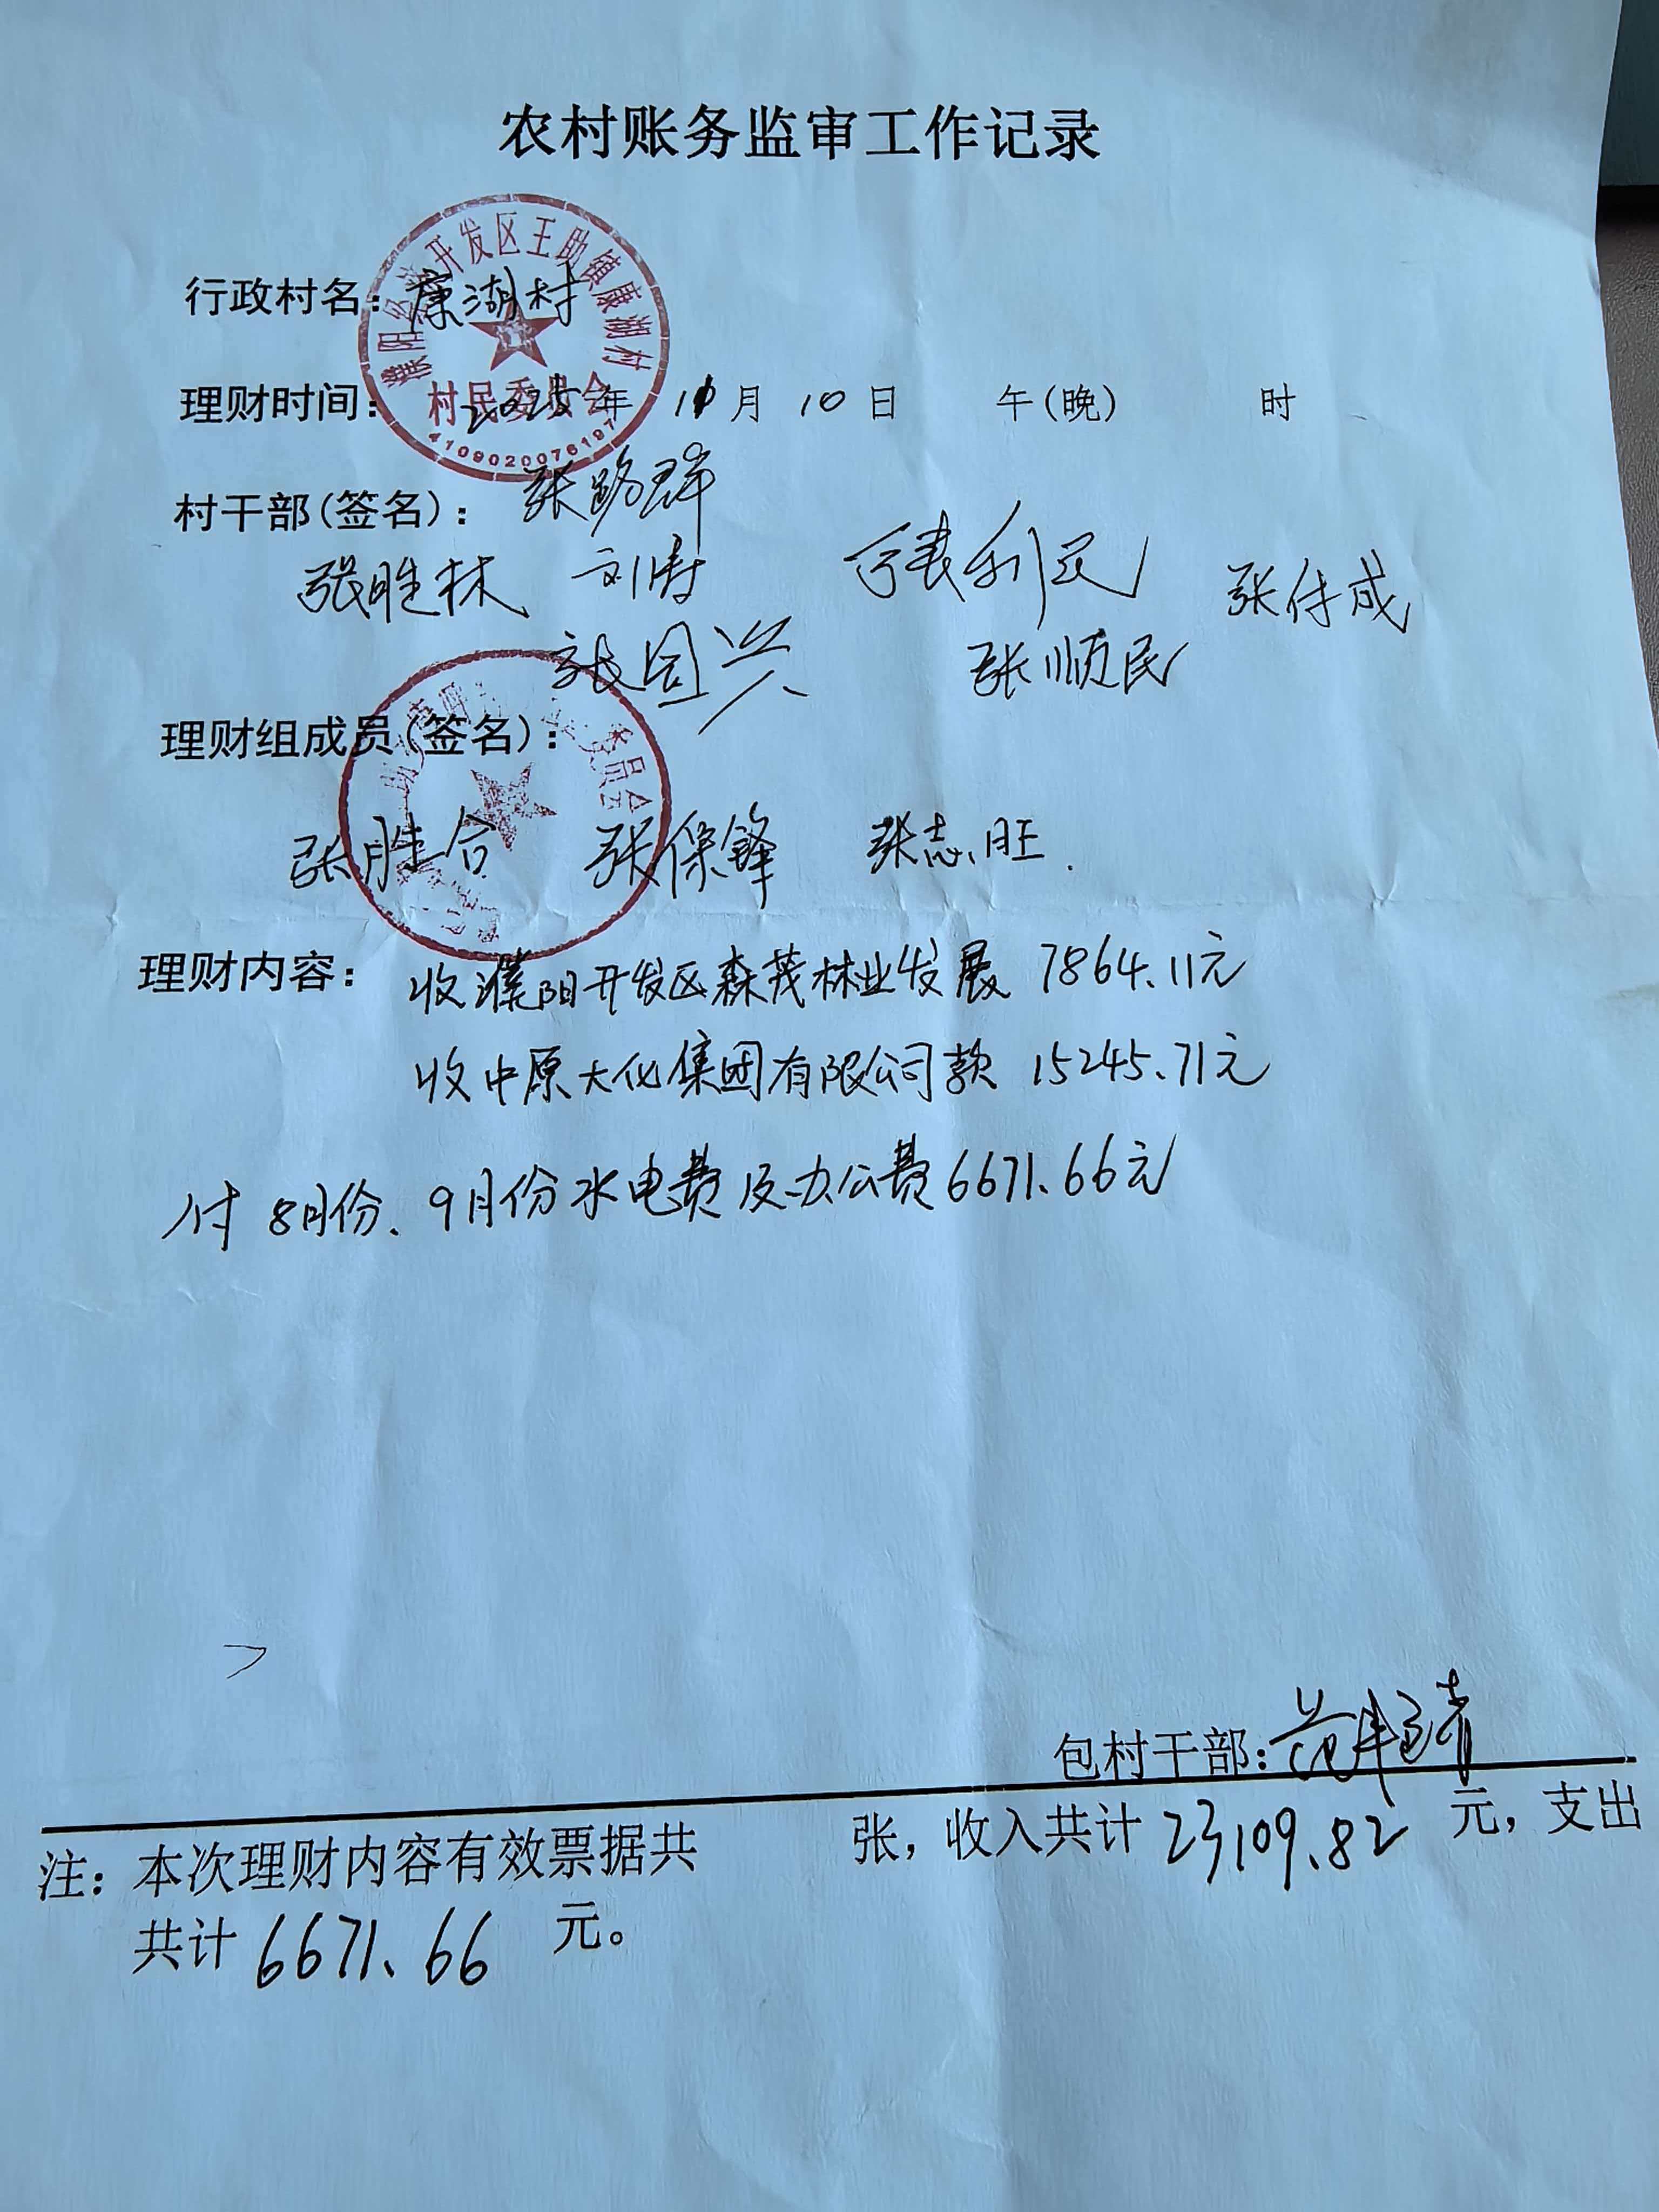 农村账务监审工作记录
濮阳经济开发区王助镇康湖村
行政村名：康湖村
理财时间： 2025年 11月 10日 午(晚) 时
村民委员会
4109020076197
村干部(签名)： 张路群
张胜林 刘涛 利民 张付成
张国兴 张顺民
理财组成员(签名)：
员会
张胜合 张保锋 张志旺.
理财内容： 收濮阳开发区森茂林业发展 7864.11元
收中原大化集团有限公司款 15245.71元
付 8月份、9月份水电费及办公费6671.66元
包村干部：
注：本次理财内容有效票据共 张，收入共计 23109.82 元，支出
共计 6671.66 元。